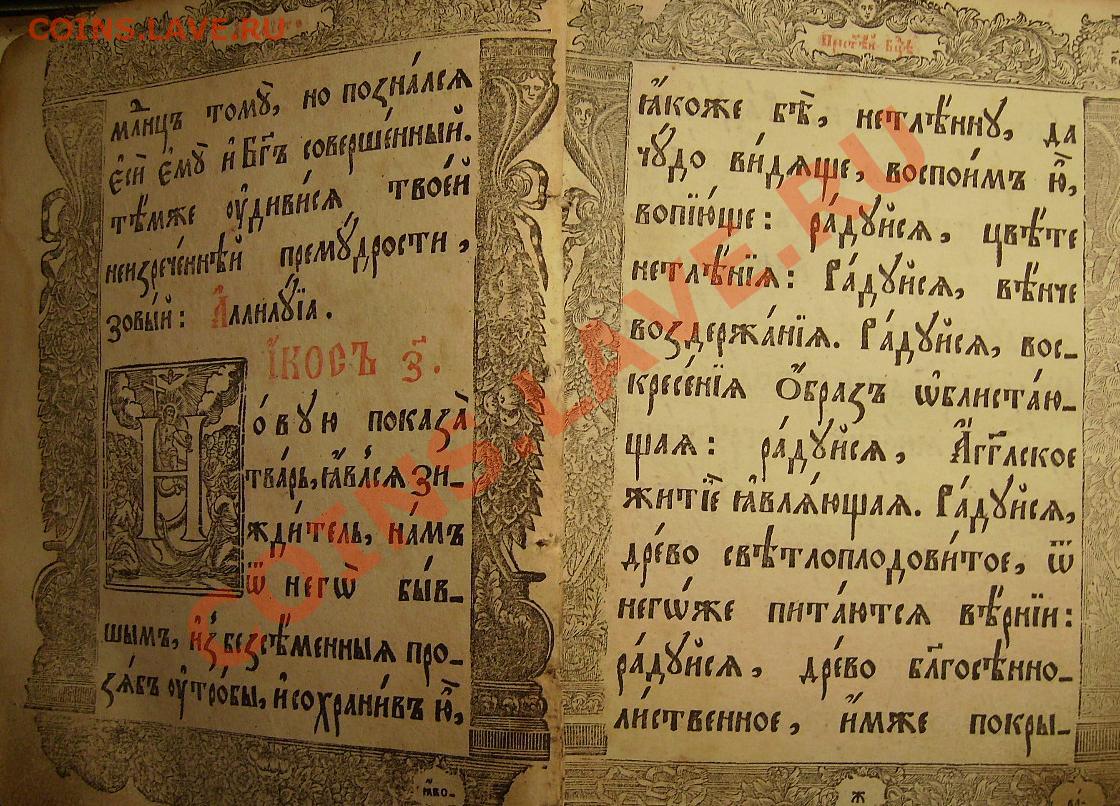 COINS.LAVE.RU
мл҃нцъ томꙋ̀, но позна́лсѧ
є҆сѝ є҆мꙋ̀ и҆ бг҃ъ соверше́нный.
тѣ́мже ᲂу҆диви́сѧ твое́й
неизрече́ннѣй премꙋ́дрости,
зовы́й: А҆ллилꙋ́їа.
І҆́косъ з҃.
Но́вꙋю показа̀
тва́рь, ꙗ҆вле́йсѧ зи-
жди́тель, на́мъ
ѿ негѡ̀ бы́в-
шымъ, и҆з̾ безсѣ́менныѧ про-
зѧ́бъ ᲂу҆тро́бы, и҆ сохрани́въ ю҆̀,
ꙗ҆́ко-
Прест҃ѣ́й бц҃ѣ
ꙗ҆́коже бѣ̀, нетлѣ́ннꙋ, да
чꙋ́до ви́дѧще, воспои́мъ ю҆̀,
вопїю́ще: ра́дꙋйсѧ, цвѣ́те
нетлѣ́нїѧ: Ра́дꙋйсѧ, вѣ́нче
воздержа́нїѧ. Ра́дꙋйсѧ, вос-
кресе́нїѧ ѻ҆́бразъ ѡ҆блиста́ю-
щаѧ: ра́дꙋйсѧ, А҆́гг҃лское
житїѐ ꙗ҆влѧ́ющаѧ. Ра́дꙋйсѧ,
дре́во свѣтлоплодови́тое, ѿ
негѡ́же пита́ютсѧ вѣ́рнїи:
ра́дꙋйсѧ, дре́во бл҃госѣнно-
ли́ственное, и҆́мже покры-
COINS.LAVE.RU